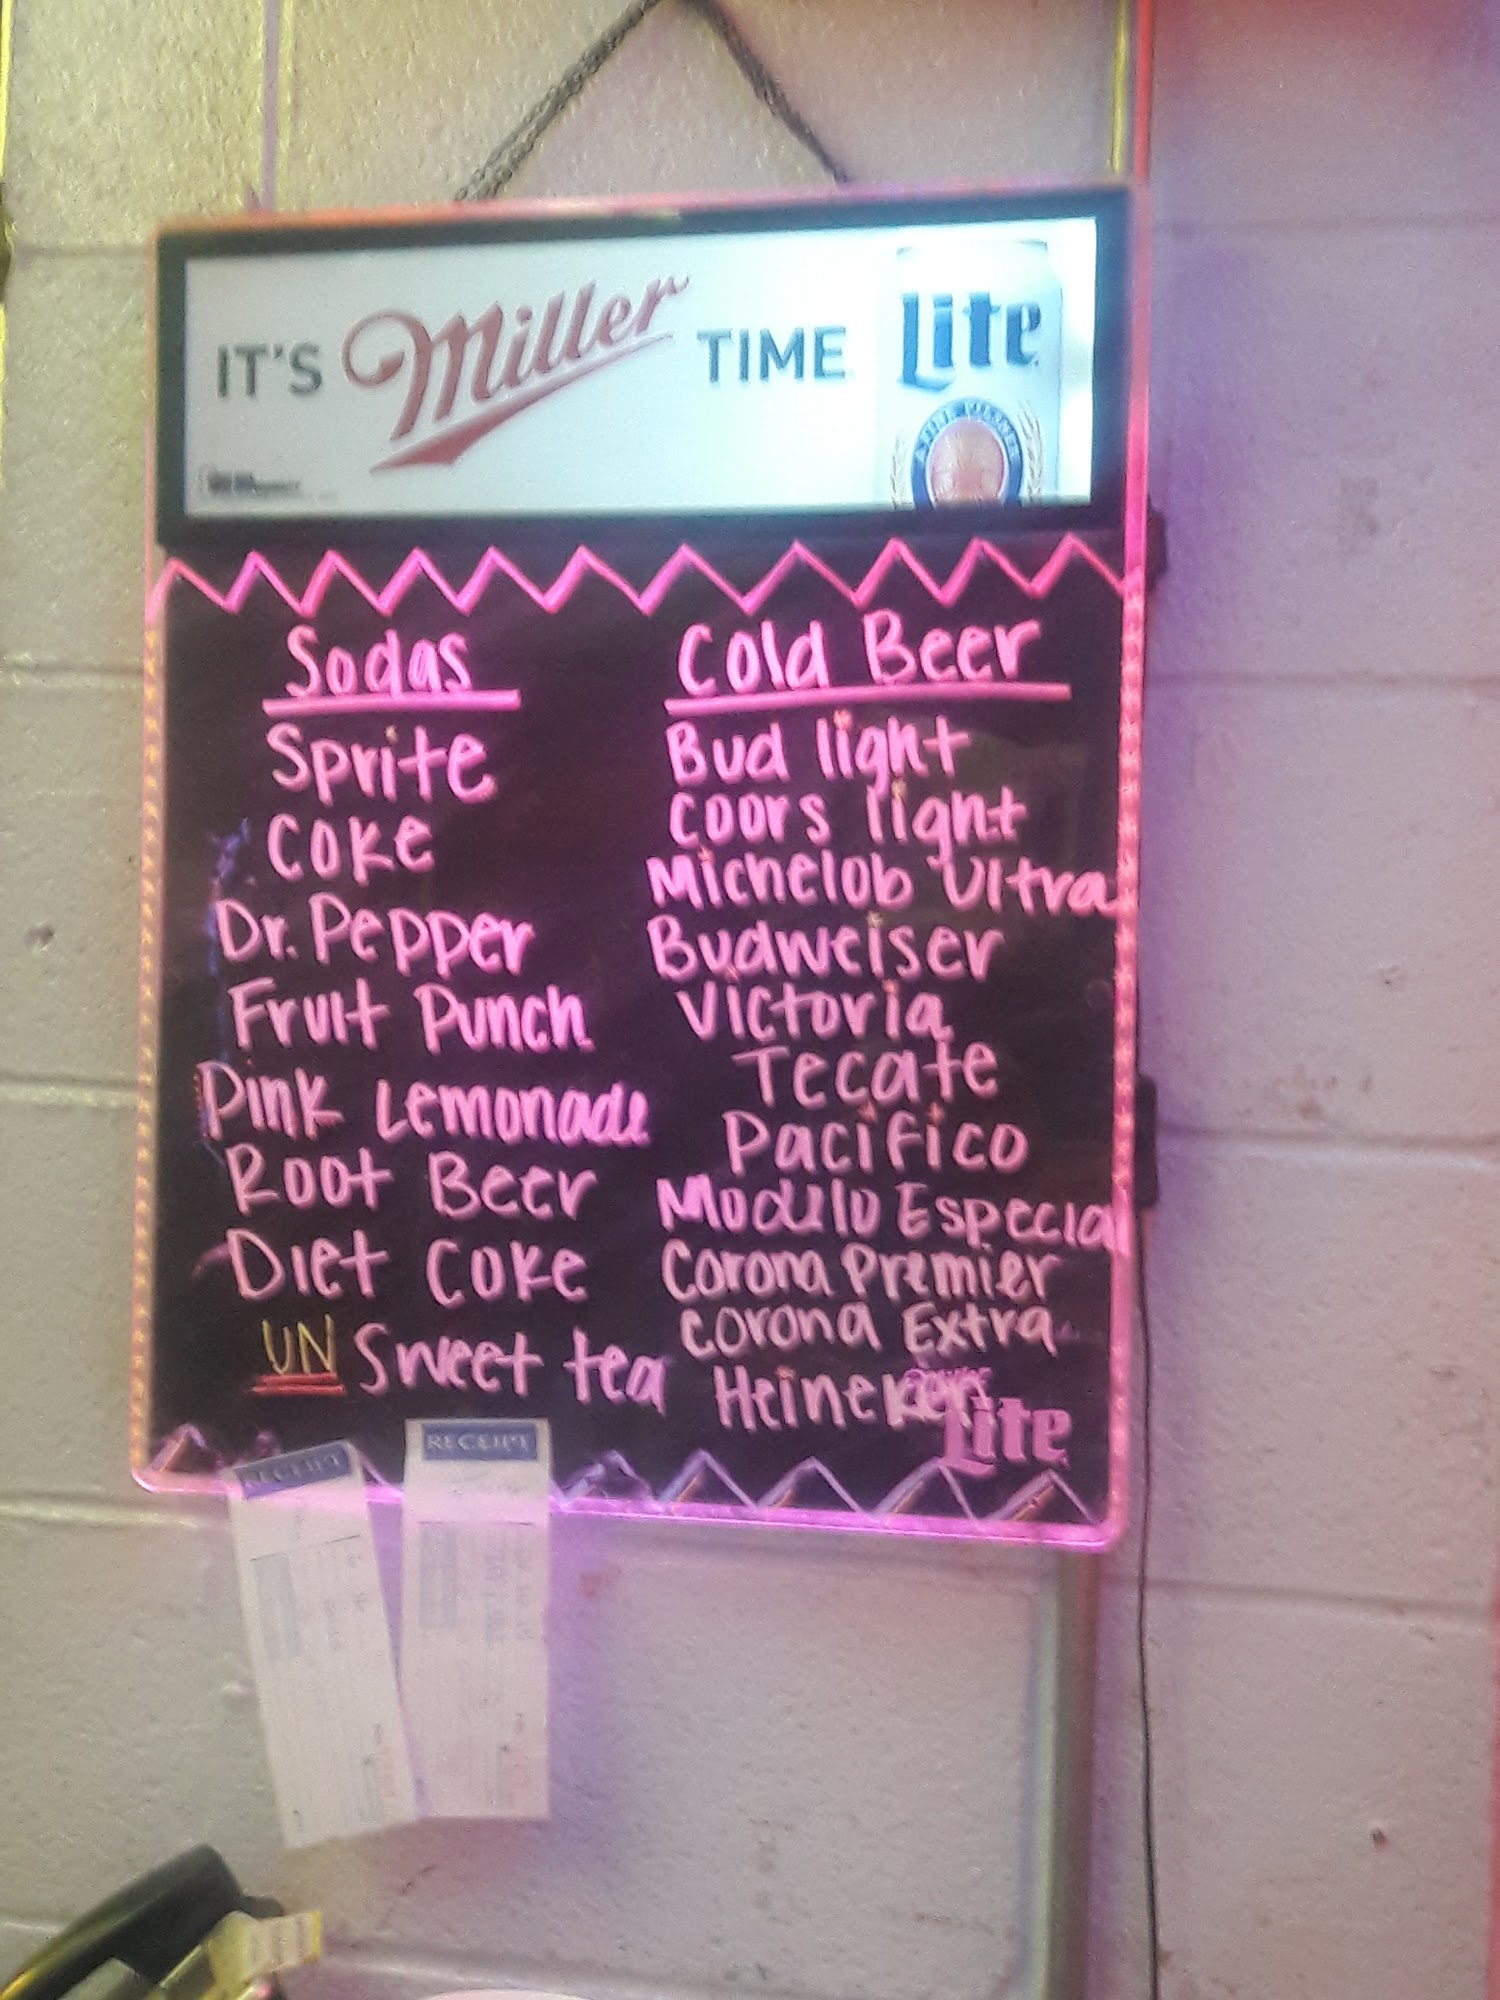 IT'S Miller TIME
Lite
A FINE PILSNER
Sodas
Sprite
Coke
Dr. Pepper
Fruit Punch
Pink Lemonade
Root Beer
Diet Coke
UN Sweet tea
Cold Beer
Bud light
Coors light
Michelob Ultra
Budweiser
Victoria
Tecate
Pacifico
Modelo Especial
Corona Premier
Corona Extra
Heineken
Lite
RECEIPT
RECEIPT